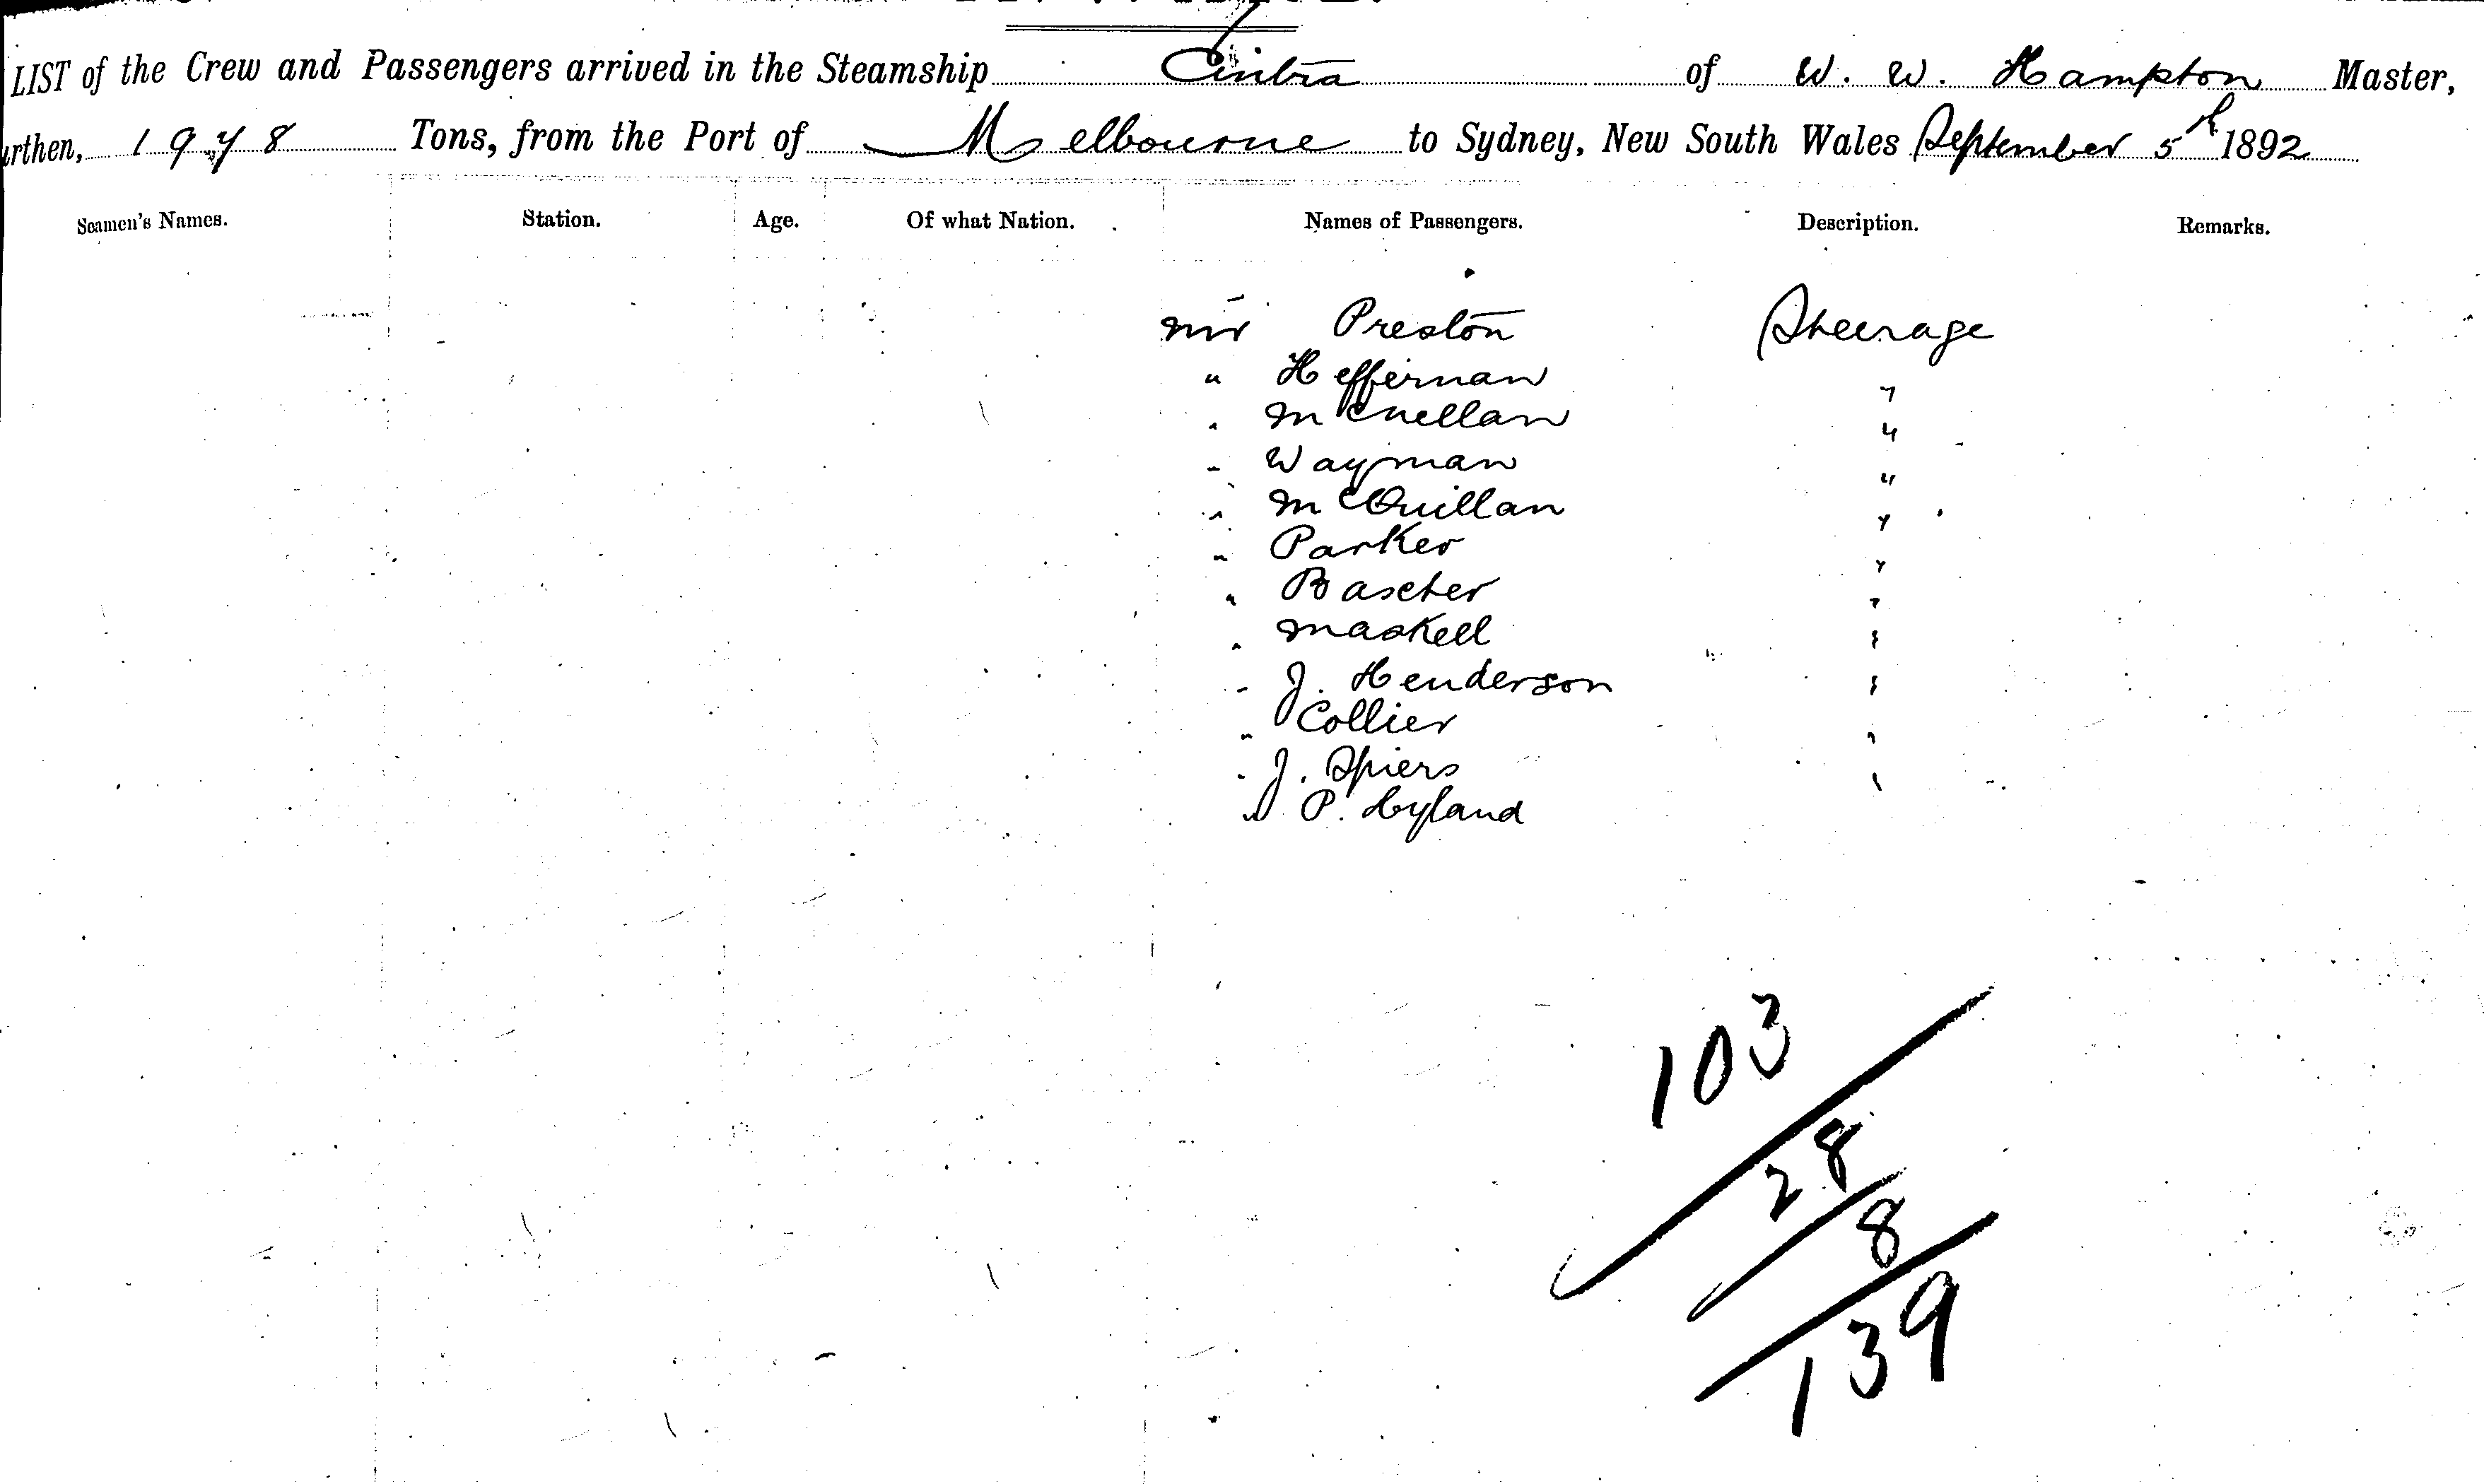 LIST of the Crew and Passengers arrived in the Steamship Cintra of W. W. Hampton Master,
urthen, 1978 Tons, from the Port of Melbourne to Sydney, New South Wales September 5th 1892
Seamen's Names. Station. Age. Of what Nation. Names of Passengers. Description. Remarks.
Mr Preston Steerage
" Heffernan "
" McClellan "
" Wayman "
" McQuillan "
" Parker "
" Bascter "
" Maskell "
" J. Henderson "
" Collier "
" J. Spiers "
" P. Hyland
103
28
8
139